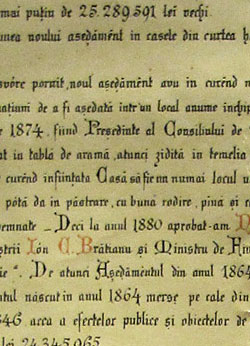 mai puțin de 25.289.391 lei vechi.
mea noului așeḑământ în casele din curtea h
svóre pornit, noul așeḑământ avu în curênd n
ațiuni de a fi așeḑată într'un local anume închip
e 1874, fiind Președinte al Consiliului de
at în tabla de aramă, atunci zidită în temelia
curênd înființata Casă să fie nu numai locul un
pótă da în păstrare, cu buna rodire, pină și c
emnate – Deci la anul 1880 aprobat-am
ștrii Ión C. Brătianu și Ministru de Fin
ie". De atunci Așeḑămêntul din anul 1864
atul născut în anul 1864 merse pe cale din
346 acea a efectelor publice și obiectelor de
lei 24.345.065